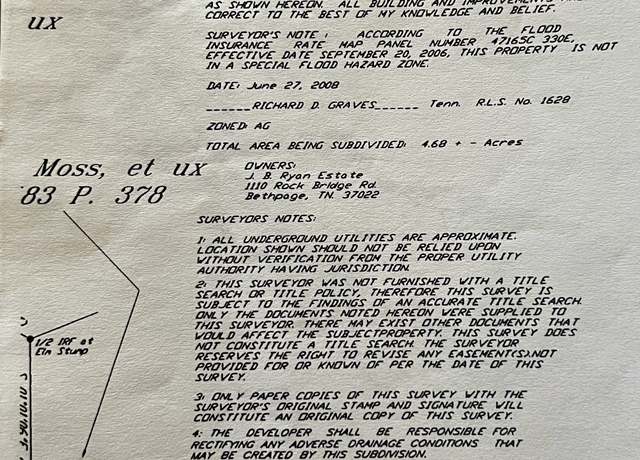 ux
AS SHOWN HEREON. ALL BUILDING AND IMPROVEMENTS
CORRECT TO THE BEST OF MY KNOWLEDGE AND BELIEF.
SURVEYOR'S NOTE : ACCORDING TO THE FLOOD
INSURANCE RATE MAP PANEL NUMBER 47165C 330E,
EFFECTIVE DATE SEPTEMBER 20, 2006, THIS PROPERTY IS NOT
IN A SPECIAL FLOOD HAZARD ZONE.
DATE: June 27, 2008
______RICHARD D. GRAVES______ Tenn. R.L.S. No. 1628
ZONED: AG
TOTAL AREA BEING SUBDIVIDED: 4.68 + - Acres
Moss, et ux
83 P. 378
OWNERS:
J. B. Ryan Estate
1110 Rock Bridge Rd.
Bethpage, TN. 37022
SURVEYORS NOTES:
1: ALL UNDERGROUND UTILITIES ARE APPROXIMATE.
LOCATION SHOWN SHOULD NOT BE RELIED UPON
WITHOUT VERIFICATION FROM THE PROPER UTILITY
AUTHORITY HAVING JURISDICTION.
2: THIS SURVEYOR WAS NOT FURNISHED WITH A TITLE
SEARCH OR TITLE POLICY, THEREFORE THIS SURVEY IS
SUBJECT TO THE FINDINGS OF AN ACCURATE TITLE SEARCH.
ONLY THE DOCUMENTS NOTED HEREON WERE SUPPLIED TO
THIS SURVEYOR. THERE MAY EXIST OTHER DOCUMENTS THAT
WOULD AFFECT THE SUBJECTPROPERTY. THIS SURVEY DOES
NOT CONSTITUTE A TITLE SEARCH. THE SURVEYOR
RESERVES THE RIGHT TO REVISE ANY EASEMENT(S).NOT
PROVIDED FOR OR KNOWN OF PER THE DATE OF THIS
SURVEY.
3: ONLY PAPER COPIES OF THIS SURVEY WITH THE
SURVEYOR'S ORIGINAL STAMP AND SIGNATURE WILL
CONSTITUTE AN ORIGINAL COPY OF THIS SURVEY.
4: THE DEVELOPER SHALL BE RESPONSIBLE FOR
RECTIFYING ANY ADVERSE DRAINAGE CONDITIONS THAT
MAY BE CREATED BY THIS SUBDIVISION.
1/2 IRF at
Elm Stump